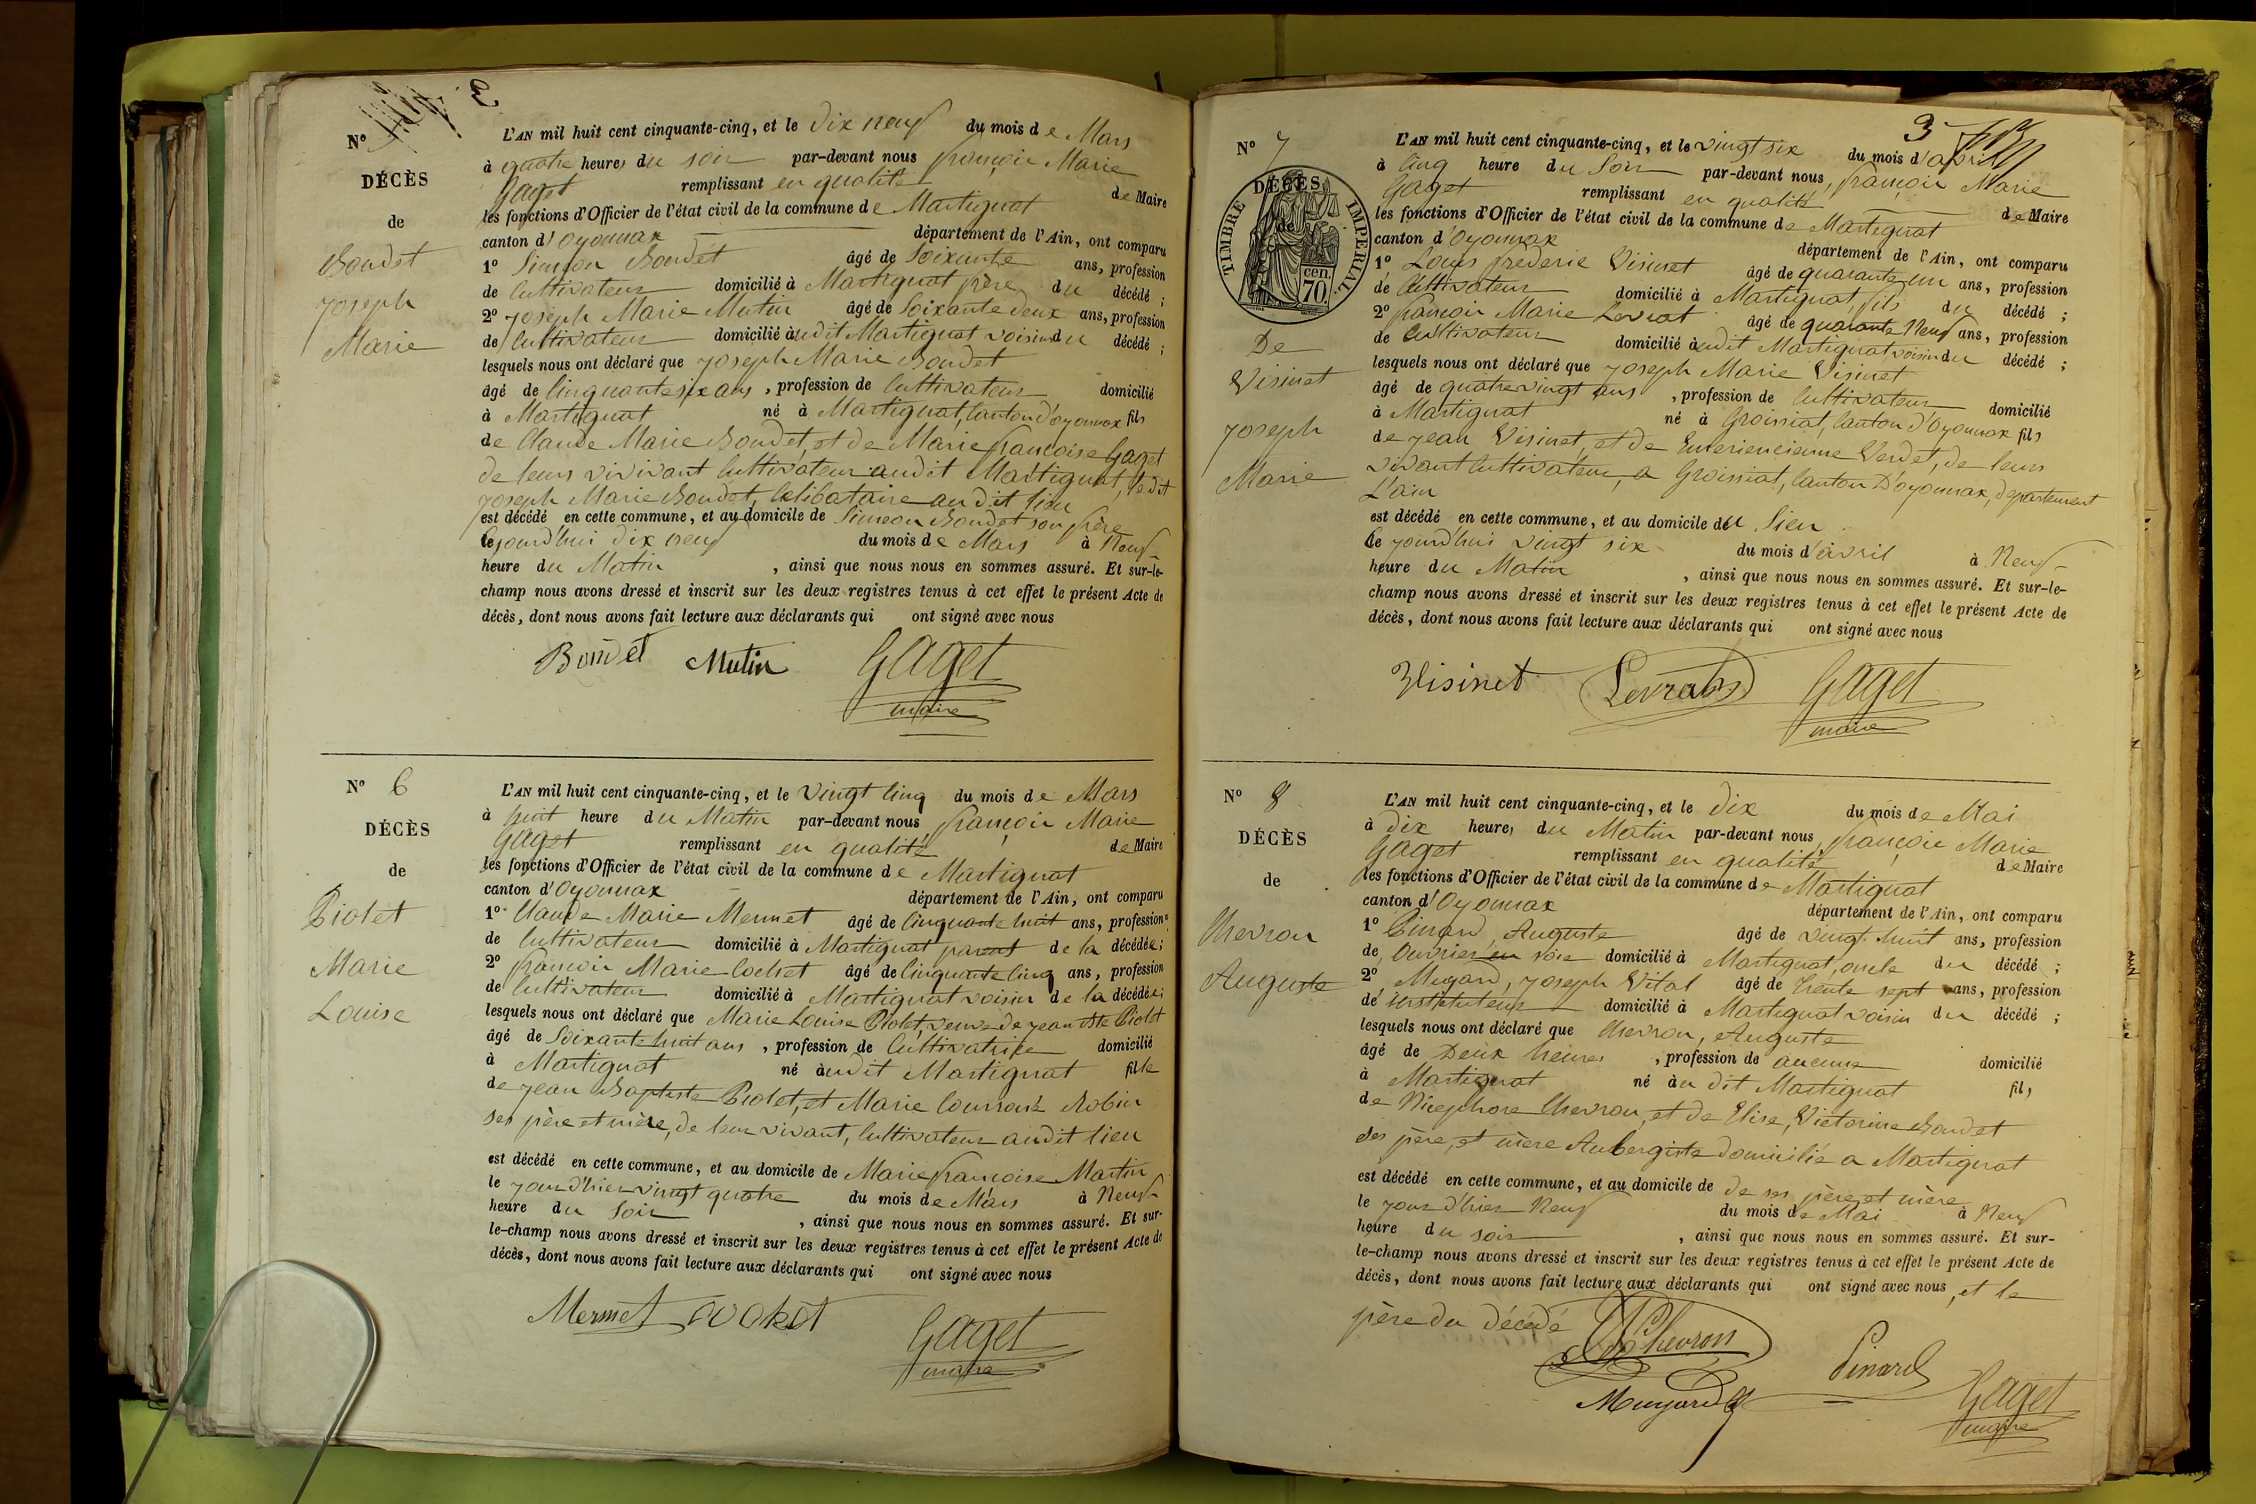 2
N°
DÉCÈS
de
Bondet
Joseph
Marie
L'AN mil huit cent cinquante-cinq, et le dix neuf du mois de Mars
à quatre heures du soir par-devant nous françois Marie
Gaget remplissant en qualité de Maire
les fonctions d'Officier de l'état civil de la commune de Martignat
canton d'Oyonnax département de l'Ain, ont comparu
1° Siméon Bondet âgé de Soixante ans, profession
de Cultivateur domicilié à Martignat frère du décédé ;
2° Joseph Marie Mutin âgé de Soixante deux ans, profession
de Cultivateur domicilié audit Martignat voisin du décédé ;
lesquels nous ont déclaré que Joseph Marie Bondet
âgé de Cinquante six ans, profession de Cultivateur domicilié
à Martignat né à Martignat, Canton d'Oyonnax fils
de Claude Marie Bondet, et de Marie françoise Gaget
de leurs vivivant Cultivateur audit Martignat, ledit
Joseph Marie Bondet, Célibataire audit lieu
est décédé en cette commune, et au domicile de Siméon Bondet son frère
le jourd'hui dix neuf du mois de Mars à Neuf
heure du Matin, ainsi que nous nous en sommes assuré. Et sur-le-
champ nous avons dressé et inscrit sur les deux registres tenus à cet effet le présent Acte de
décès, dont nous avons fait lecture aux déclarants qui ont signé avec nous
Bondet Mutin Gaget
maire
N° 6
DÉCÈS
de
Piolet
Marie
Louise
L'AN mil huit cent cinquante-cinq, et le Vingt Cinq du mois de Mars
à huit heure du Matin par-devant nous françois Marie
Gaget remplissant en qualité de Maire
les fonctions d'Officier de l'état civil de la commune de Martignat
canton d'Oyonnax département de l'Ain, ont comparu
1° Claude Marie Mermet âgé de Cinquante huit ans, profession
de Cultivateur domicilié à Martignat parent de la décédée ;
2° françois Marie Cochet âgé de Cinquante Cinq ans, profession
de Cultivateur domicilié à Martignat voisin de la décédée ;
lesquels nous ont déclaré que Marie Louise Piolet, veuve de jean Bte Piolet
âgé de Soixante huit ans, profession de Cultivatrice domicilié
à Martignat né audit Martignat fille
de jean Baptiste Piolet, et Marie Robin
Ses père et mère, de leur vivant, Cultivateur audit lieu
est décédé en cette commune, et au domicile de Marie françoise Martin
le jour d'hier vingt quatre du mois de Mars à Neuf
heure du Soir, ainsi que nous nous en sommes assuré. Et sur-
le-champ nous avons dressé et inscrit sur les deux registres tenus à cet effet le présent Acte de
décès, dont nous avons fait lecture aux déclarants qui ont signé avec nous
Mermet Cochet Gaget
maire
3
N° 7
DÉCÈS
de
TIMBRE IMPERIAL
70 cen.
De
Visinet
Joseph
Marie
L'AN mil huit cent cinquante-cinq, et le vingt six du mois d'avril
à Cinq heure du Soir par-devant nous, françois Marie
Gaget remplissant en qualité de Maire
les fonctions d'Officier de l'état civil de la commune de Martignat
canton d'Oyonnax département de l'Ain, ont comparu
1° Louis frederic Visinet âgé de quarante un ans, profession
de Cultivateur domicilié à Martignat, fils du décédé ;
2° françois Marie Levrat âgé de quarante Neuf ans, profession
de Cultivateur domicilié audit Martignat voisin du décédé ;
lesquels nous ont déclaré que Joseph Marie Visinet
âgé de quatre vingt ans, profession de Cultivateur domicilié
à Martignat né à Groissiat, Canton d'Oyonnax fils
de jean Visinet, et de Verdet, de leurs
vivant Cultivateur, a Groissiat, Canton D'oyonnax, departement
L'ain
est décédé en cette commune, et au domicile du Sien
le jourd'hui vingt six du mois d'avril à Neuf
heure du Matin, ainsi que nous nous en sommes assuré. Et sur-le-
champ nous avons dressé et inscrit sur les deux registres tenus à cet effet le présent Acte de
décès, dont nous avons fait lecture aux déclarants qui ont signé avec nous
Visinet Levrat Gaget
maire
N° 8
DÉCÈS
de
Chevron
Auguste
L'AN mil huit cent cinquante-cinq, et le dix du mois de Mai
à dix heures du Matin par-devant nous, françois Marie
Gaget remplissant en qualité de Maire
les fonctions d'Officier de l'état civil de la commune de Martignat
canton d'Oyonnax département de l'Ain, ont comparu
1° Pinard, Auguste âgé de vingt huit ans, profession
de Ouvrier en soie domicilié à Martignat, oncle du décédé ;
2° Muyard, Joseph Vital âgé de trente sept ans, profession
de instituteur domicilié à Martignat voisin du décédé ;
lesquels nous ont déclaré que Chevron, Auguste
âgé de Deux heures, profession de aucune domicilié
à Martignat né au dit Martignat fils
de Nicephore Chevron, et de Elise, Victorine Bondet
Ses père, et mère Aubergiste domicilié a Martignat
est décédé en cette commune, et au domicile de de ses père et mère
le jour d'hier Neuf du mois de Mai à Neuf
heure du soir, ainsi que nous nous en sommes assuré. Et sur-
le-champ nous avons dressé et inscrit sur les deux registres tenus à cet effet le présent Acte de
décès, dont nous avons fait lecture aux déclarants qui ont signé avec nous, et le
père du décédé Chevron
Pinard
Muyard Gaget
maire